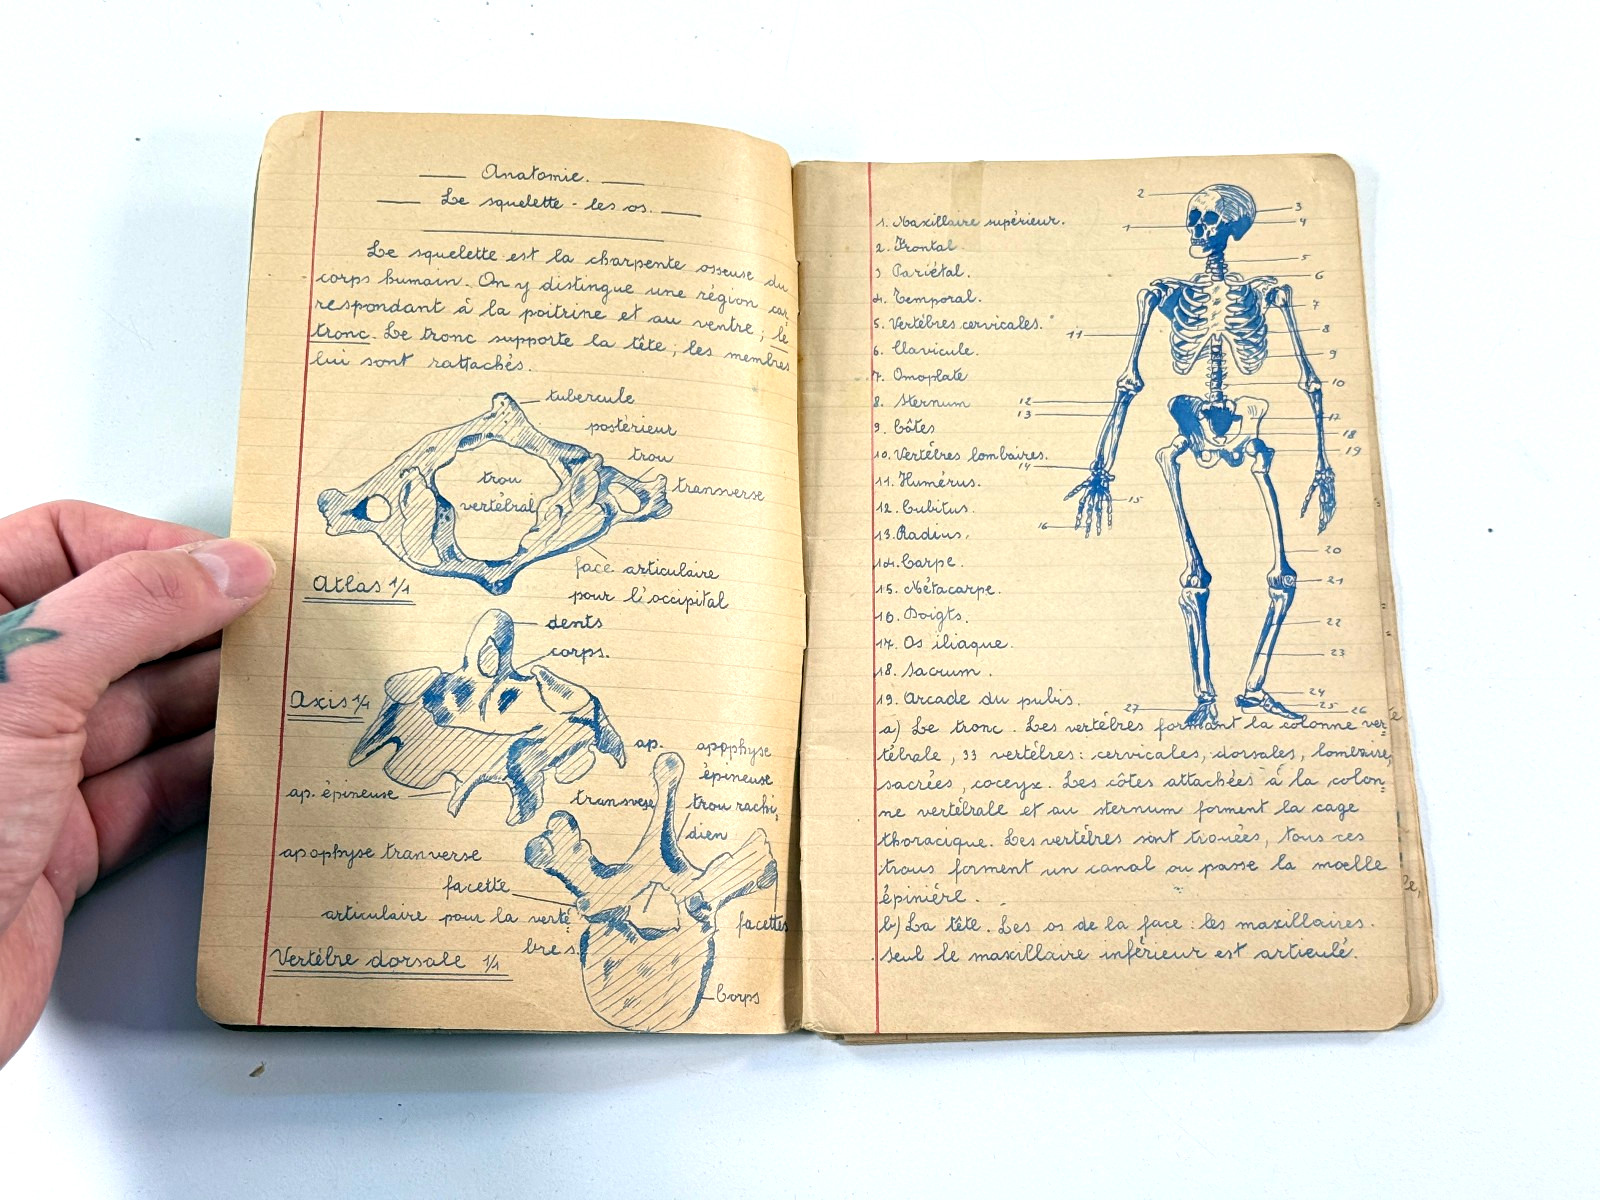 Anatomie.
Le squelette - les os.
Le squelette est la charpente osseuse du
corps humain. On y distingue une région cor
respondant à la poitrine et au ventre ; le
tronc. Le tronc supporte la tête ; les membres
lui sont rattachés.
tubercule
postérieur
trou
transverse
trou
vertébral
face articulaire
pour l'occipital
Atlas 1/1
dents
corps.
Axis 1/1
ap.
transvese
ap. épineuse
apophyse
épineuse
trou rachi
dien
apophyse tranverse
facette
articulaire pour la verté
bre s.
facettes
Vertèbre dorsale 1/1
Corps
1. Maxillaire supérieur.
2. Frontal.
3 Pariétal.
4. Temporal.
5. Vertèbres cervicales.
6. Clavicule.
7. Omoplate
8. Sternum
9. Côtes
10. Vertèbres lombaires.
11. Humérus.
12. Cubitus.
13. Radius.
14. Carpe.
15. Métacarpe.
16. Doigts.
17. Os iliaque.
18. Sacrum.
19. Arcade du pubis.
2
3
4
1
5
6
7
8
11
9
10
12
13
17
18
19
14
15
16
20
21
22
23
24
25
26
27
a) Le tronc. Les vertèbres formant la colonne ver
tébrale, 33 vertèbres : cervicales, dorsales, lombaires,
sacrées, coccyx. Les côtes attachées à la colon
ne vertébrale et au sternum forment la cage
thoracique. Les vertèbres sont trouées, tous ces
trous forment un canal ou passe la moelle
épinière.
b) La tête. Les os de la face : les maxillaires.
Seul le maxillaire inférieur est articulé.